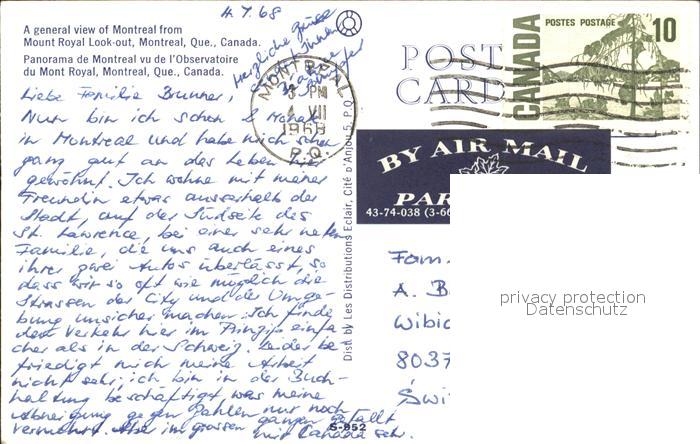 4.7.68
A general view of Montreal from
Mount Royal Look-out, Montreal, Que., Canada.
Panorama de Montreal vu de l'Observatoire
du Mont Royal, Montreal, Que., Canada.
Herzliche Grüsse
Ihnen
Liebe Familie Brunner,
Nun bin ich schon 2 Monate
in Montreal und habe mich schon
ganz gut an das Leben hier
gewöhnt. Ich wohne mit meiner
Freundin etwas ausserhalb der
Stadt, auf der Südseite des
St. Lawrence, bei einer sehr netten
Familie, die uns auch eines
ihrer zwei Autos überlässt, so
dass wir so oft wie möglich die
Strassen der City und der Umge-
bung unsicher machen. Ich finde
den Verkehr hier im Prinzip einfa-
cher als in der Schweiz. Leider be-
friedigt mich meine Arbeit
nicht sehr, ich bin in der Buch-
haltung beschäftigt was meine
Abneigung gegen Zahlen nur noch
vermehrt. Aber im grossen ganzen gefällt
mir Canada sehr.
MONTREAL
PM
4 VII
1968
P.Q.
POST
CARD
POSTES POSTAGE
10
CANADA
BY AIR MAIL
PAR
43-74-038 (3-66
Dist. by Les Distributions Eclair, Cité d'Anjou 5, P.Q.
S-952
Fam.
A. B
Wibic
8037
Swi
privacy protection
Datenschutz